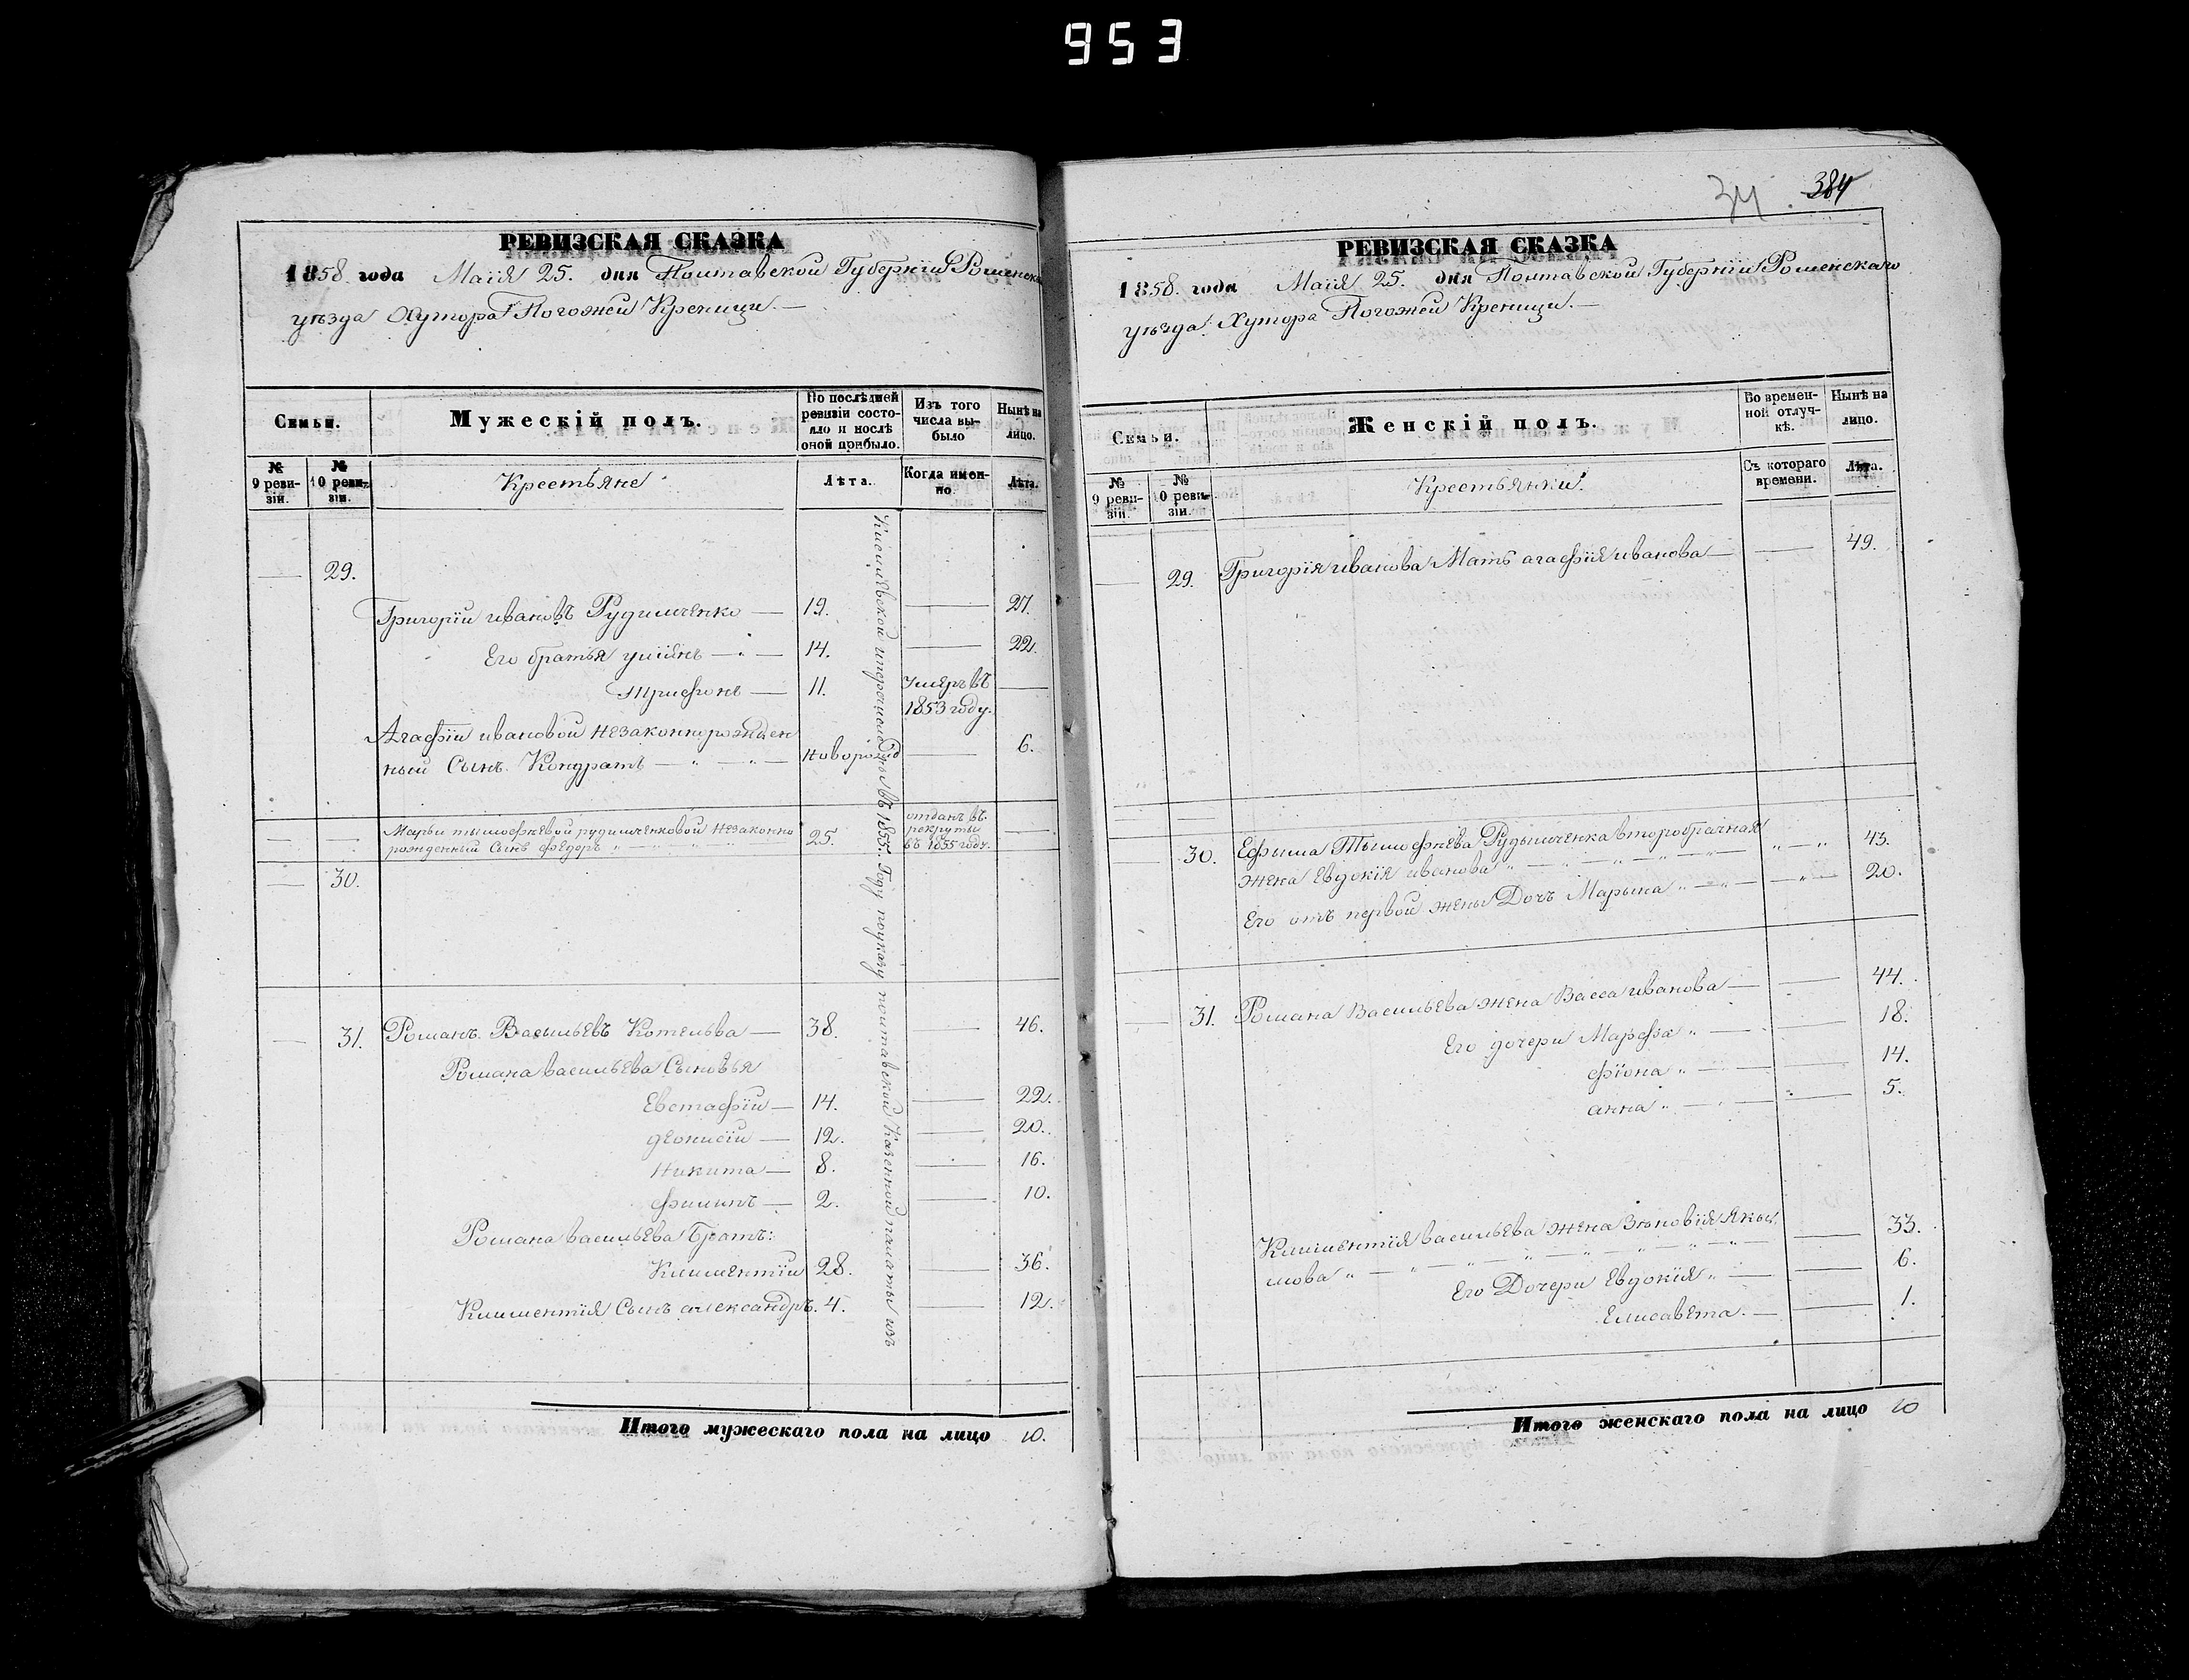 953
РЕВИЗСКАЯ СКАЗКА
1858 года Маія 25. дня Полтавской Губерніи Роменска
уѣзда Хутора Погожей Креници.
Семьи.
Мужескій полъ.
По послѣдней ревизіи состояло и послѣ оной прибыло.
Изъ того числа выбыло
Нынѣ на лицо.
№ 9 ревизіи.
№ 10 ревизіи.
Крестьяне
Лѣта.
Когда именно.
Лѣта.
29.
Григорій ивановъ Рудимченко — 19. — 27.
Его братья улиянъ — 14. — 22.
Трифонъ — 11. Умеръ въ 1853 году. —
Агафіи ивановой незаконнорожден
ный Сынъ Кондратъ — новорожд — 6.
Марьи тымофѣевой рудимченковой незаконно
рожденный Сынъ Федоръ 25. отданъ въ рекруты въ 1855 году. —
30.
31. Романъ Васильевъ Котельва — 38. — 46.
Романа васильева Сыновья
Евстафій — 14. — 22.
деонисій — 12. — 20.
Никита — 8. — 16.
филипъ — 2. — 10.
Романа васильева Братъ:
Климентій 28. — 36.
Климентія Сынъ александръ. 4. — 12.
въ 1855. Году поуказу полтавской Казенной палаты изъ
Итого мужескаго пола на лицо 10.
34. 384
РЕВИЗСКАЯ СКАЗКА
1858. года Маія 25. дня Полтавской Губерніи Роменскаго
уѣзда Хутора Погожей Креници.
Семьи.
Женскій полъ.
Во временной отлучкѣ.
Нынѣ на лицо.
№ 9 ревизіи.
№ 10 ревизіи.
Крестьянки.
Съ котораго времени.
Лѣта.
29. Григорія иванова Мать агафія иванова — 49.
30. Ефыма Тымофѣева Рудымченка второбрачная
жена Евдокія иванова 43.
Его отъ первой жены Дочъ Марына 20.
31. Романа Васильева жена Васса иванова — 44.
Его дочери Марфа — 18.
фіона — 14.
анна — 5.
Климентія васильева жена Зѣновія Яки
мова — 33.
Его Дочери Евдокія — 6.
Елисавета. — 1.
Итого женскаго пола на лицо 10